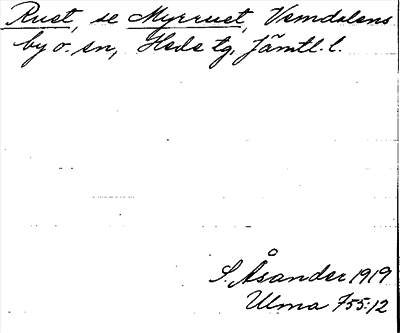 Rust, se Myrrust, Vemdalens
by o. sn, Hede tg, Jämtl. l.
S. Åsander 1919
Ulma 755:12